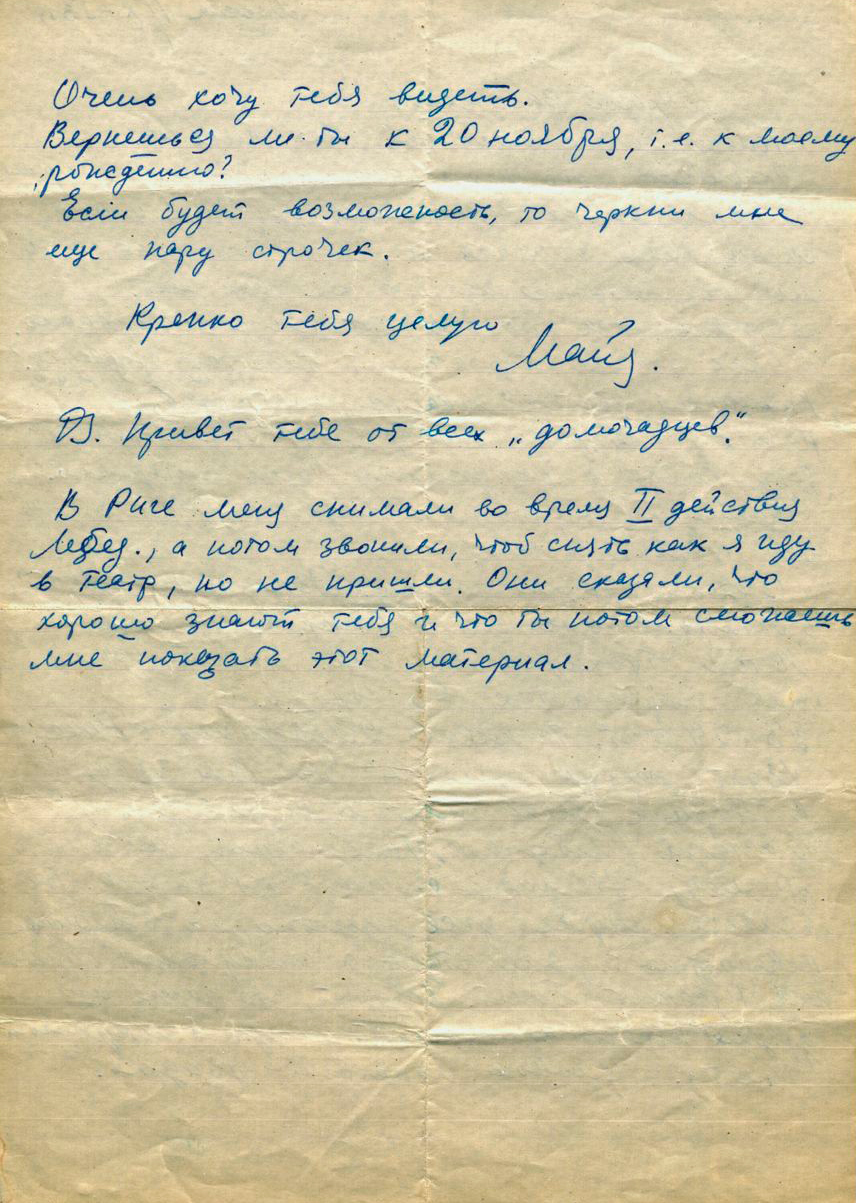 Очень хочу тебя видеть.
Вернешься ли ты к 20 ноября, т.е. к моему
рождению?
Если будет возможность, то черкни мне
еще пару строчек.
Крепко тебя целую
Майя.
PS. Привет тебе от всех „домочадцев".
В Риге меня снимали во время II действия
Лебед., а потом звонили, чтоб снять как я иду
в театр, но не пришли. Они сказали, что
хорошо знают тебя и что ты потом сможешь
мне показать этот материал.